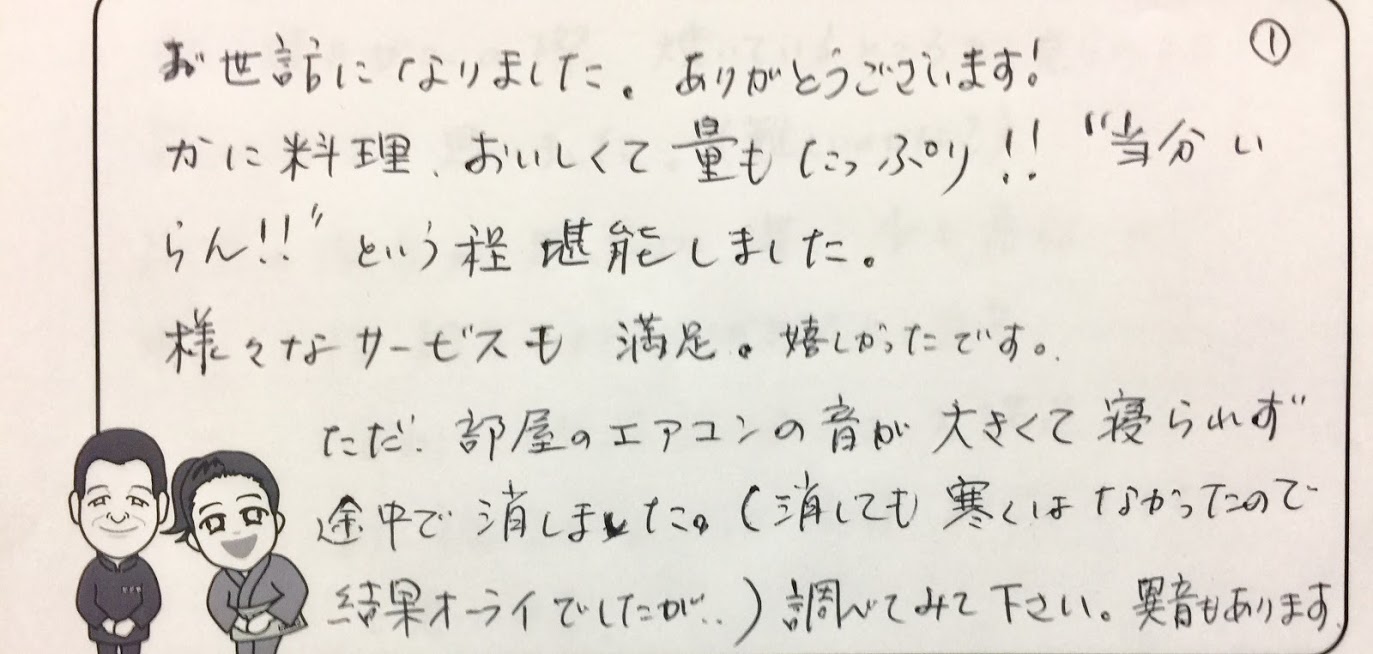 ①
お世話になりました。ありがとうございます!
かに料理、おいしくて量もたっぷり!! “当分い
らん!!” という程 堪能しました。
様々なサービスも 満足。嬉しかったです。
ただ、部屋のエアコンの音が 大きくて 寝られず
途中で 消しました。(消しても 寒くは なかったので
結果オーライでしたが..) 調べてみて下さい。異音もあります。